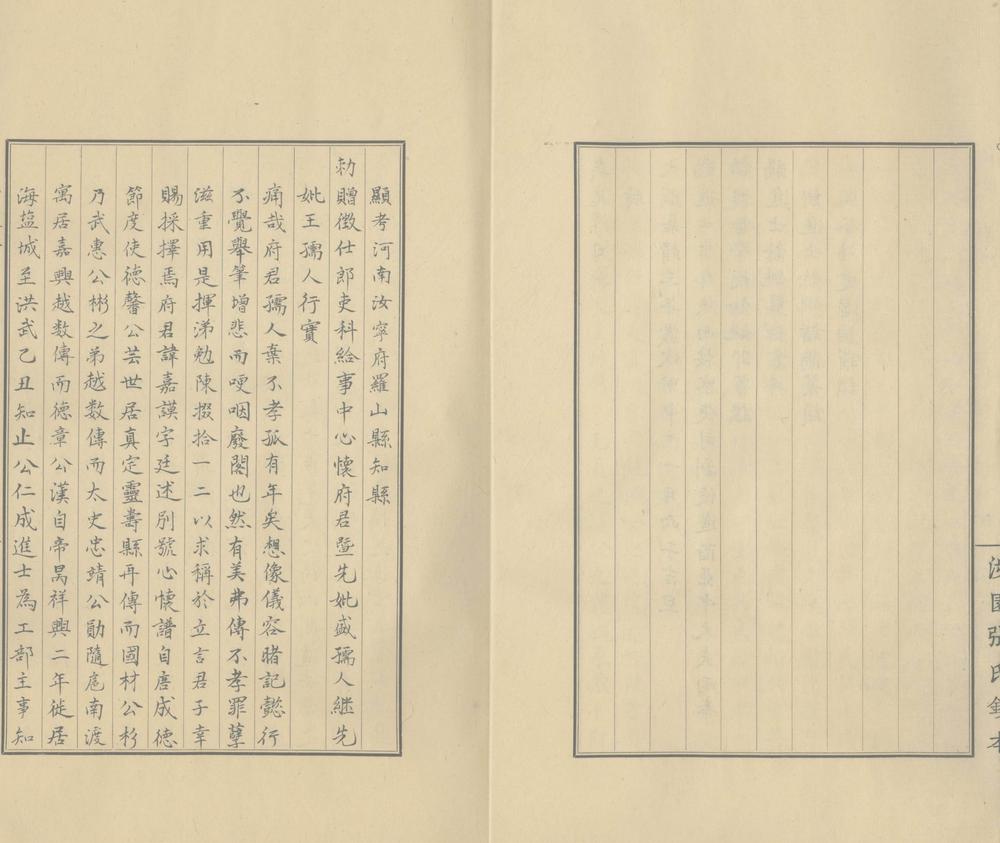 顯考河南汝寧府羅山縣知縣
勅贈徵仕郎吏科給事中心懷府君暨先妣盛孺人継先
妣王孺人行實
痛哉府君孺人棄不孝孤有年矣想像儀容睹記懿行
不覺舉筆增悲而哽咽廢閣也然有美弗傳不孝罪孽
滋重用是揮涕勉陳掇拾一二以求稱於立言君子幸
賜採擇焉府君諱嘉謨字廷述別號心懷譜自唐成德
節度使德馨公芸世居真定靈壽縣再傳而國材公杉
乃武惠公彬之弟越数傳而太史忠靖公勛隨扈南渡
寓居嘉興越数傳而德章公漢自帝昺祥興二年徙居
海塩城至洪武乙丑知止公仁成進士為工部主事知
張氏鈔本